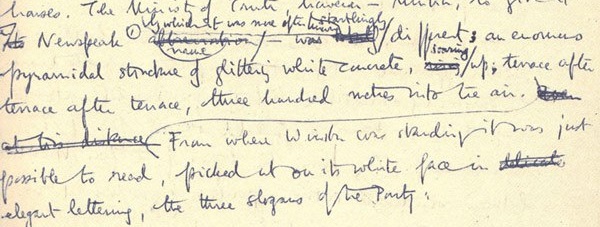 houses. The Ministry of Truth, however –
by which it was more often known startlingly
Its Newspeak (1) abbreviation name – was different; an enormous
pyramidal structure of glittering white concrete, rising soaring up, terrace after
terrace after terrace, three hundred metres into the air. Even
at this distance From where Winston was standing it was just
possible to read, picked out on its white face in delicate
elegant lettering, the three slogans of the Party: